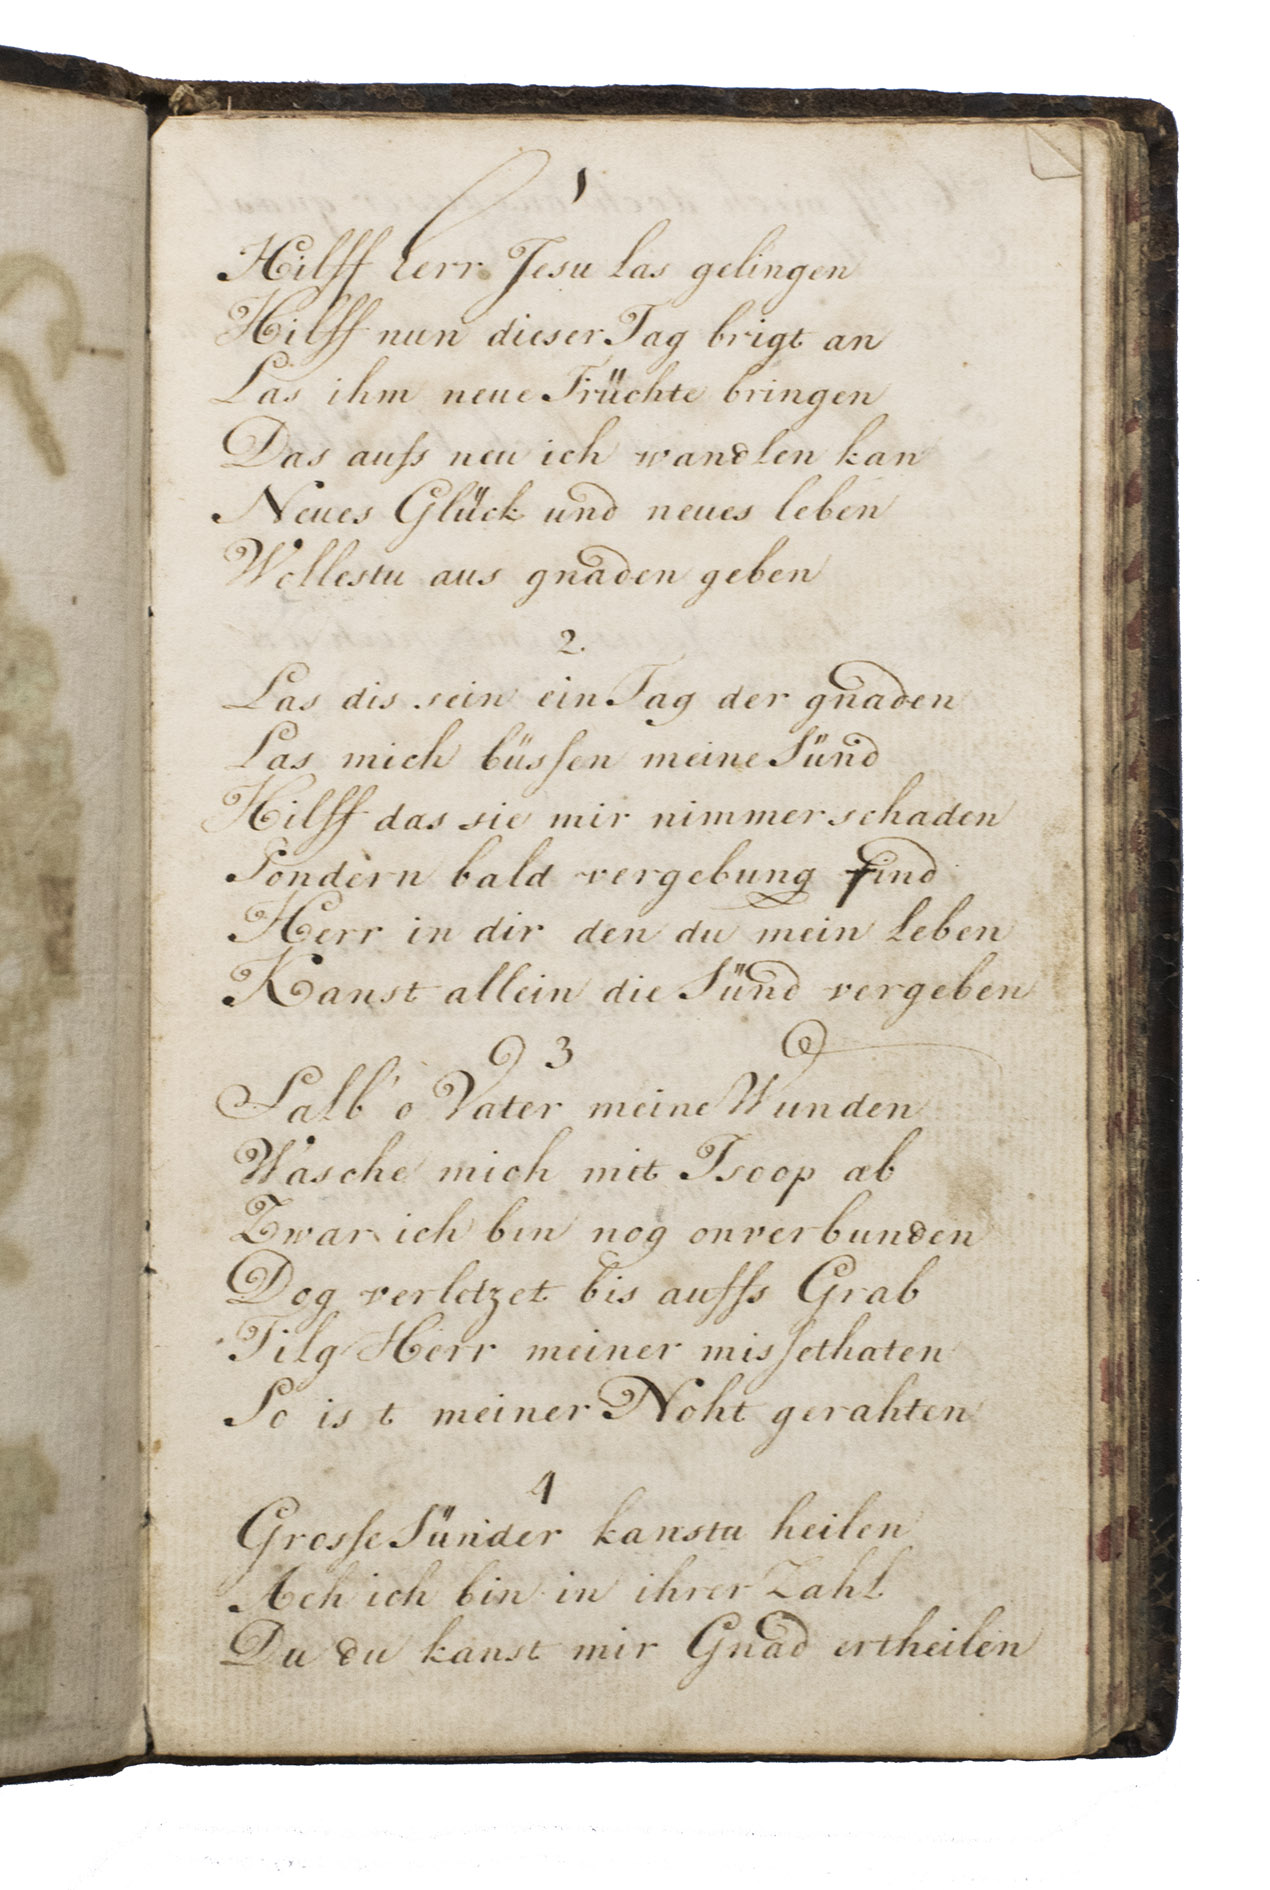 1
Hilff Herr Jesu Las gelingen
Hilff nun dieser Tag brigt an
Las ihm neue Früchte bringen
Das aufs neu ich wandlen kan
Neues Glück und neues leben
Wollestu aus gnaden geben
2.
Las dis sein ein Tag der gnaden
Las mich büssen meine Sünd
Hilff das sie mir nimmer schaden
Sondern bald vergebung find
Herr in dir den du mein Leben
Kanst allein die Sünd vergeben
3
Salb' o Vater meine Wunden
Wasche mich mit Isoop ab
Zwar ich bin nog onverbunden
Dog verletzet bis auffs Grab
Tilg Herr meiner missethaten
So ist meiner Noht gerahten
4
Grosse Sünder kanstu heilen
Ach ich bin in ihrer Zahl
Du du kanst mir Gnad ertheilen